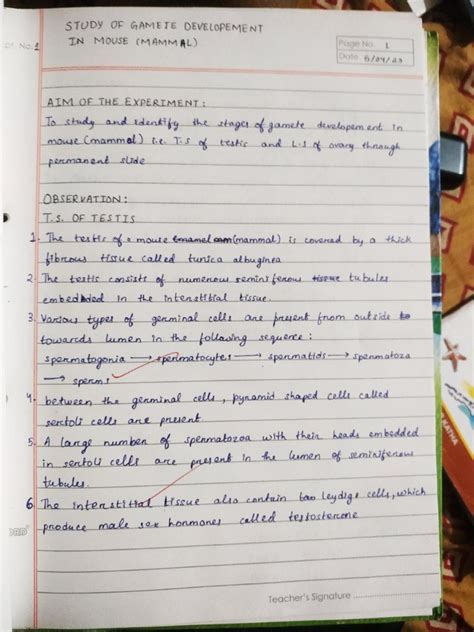 STUDY OF GAMETE DEVELOPEMENT
IN MOUSE (MAMMAL)
No. 1
Page No. 1
Date 5/04/23
AIM OF THE EXPERIMENT:
To study and identify the stages of gamete developement in
mouse (mammal) i.e. T.S of testis and L.S of ovary through
permanent slide
OBSERVATION:
T.S. OF TESTIS
1. The testis of a mouse (mammal) is covered by a thick
fibrous tissue called tunica albuginea
2. The testis consists of numerous seminiferous tissue tubules
embedded in the interstitial tissue.
3. Various types of germinal cells are present from outside to
towards lumen in the following sequence:
spermatogonia → spermatocytes → spermatids → spermatoza
→ sperms
4. between the germinal cells, pyramid shaped cells called
sertoli cells are present.
5. A large number of spermatozoa with their heads embedded
in sertoli cells are present in the lumen of seminiferous
tubules.
6. The interstitial tissue also contain leydig cells, which
produce male sex hormones called testosterone
Teacher's Signature